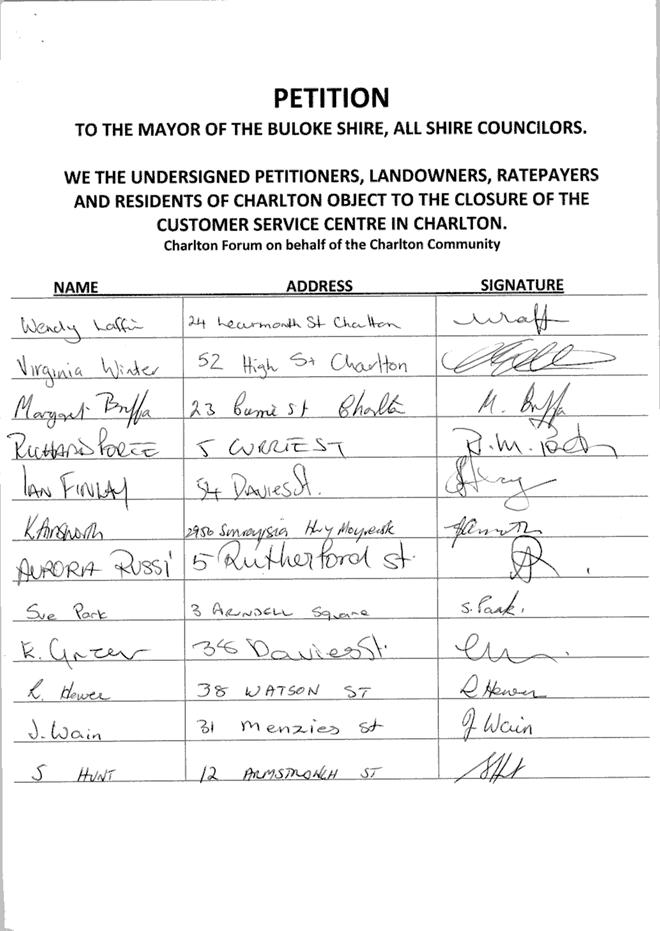 PETITION
TO THE MAYOR OF THE BULOKE SHIRE, ALL SHIRE COUNCILORS.
WE THE UNDERSIGNED PETITIONERS, LANDOWNERS, RATEPAYERS
AND RESIDENTS OF CHARLTON OBJECT TO THE CLOSURE OF THE
CUSTOMER SERVICE CENTRE IN CHARLTON.
Charlton Forum on behalf of the Charlton Community
NAME ADDRESS SIGNATURE
Wendy Laffin 24 Learmonth St Charlton
Virginia Winter 52 High St Charlton
Margaret Buffa 23 St Charlton M. Buffa
RICHARD 5 CURRIE ST R.M.
IAN FINLAY 54 DAVIES St.
2950 Sunraysia Hwy
AURORIA RUSSI 5 Rutherford st.
Sue Park 3 ARUNDELL Square S. Park.
38 Davies St.
R. Hewer 38 WATSON ST R Hewer
J. Wain 31 Menzies st J Wain
S HUNT 12 ST